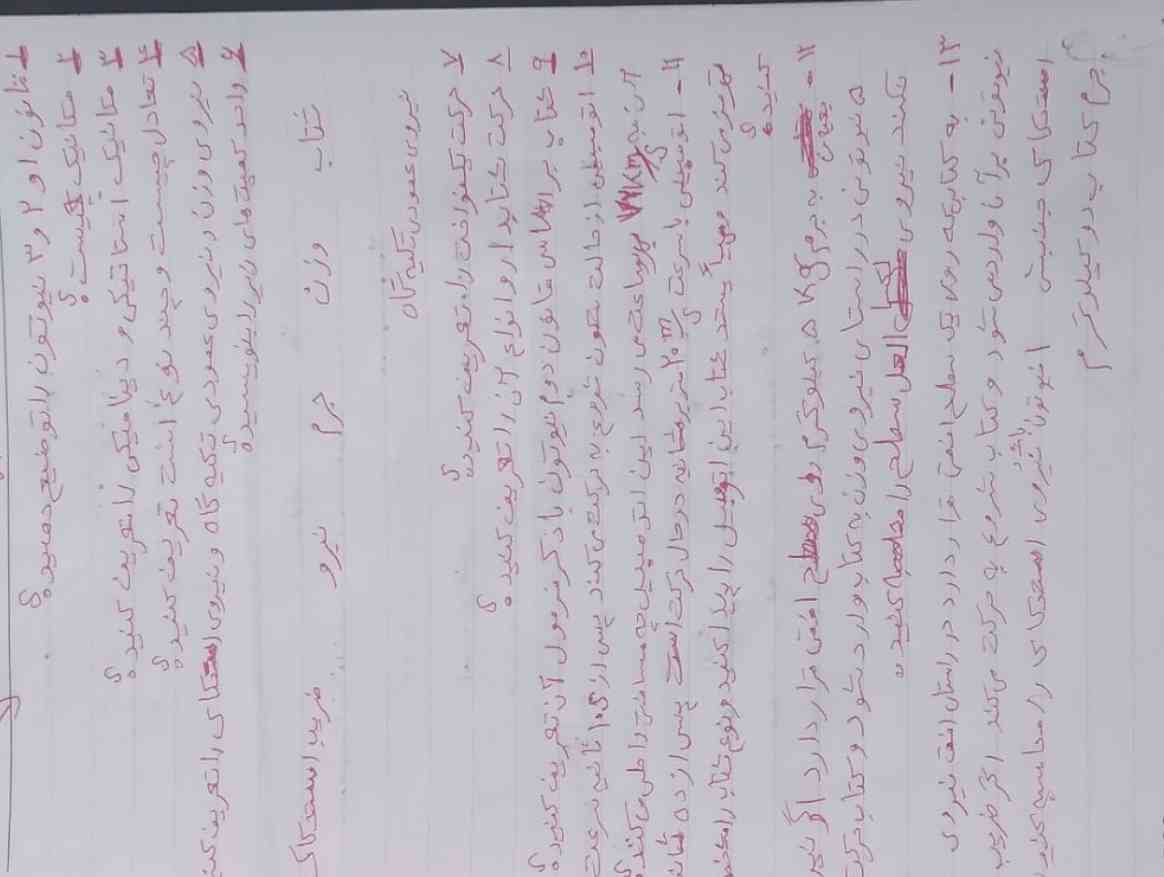 ۱ قانون ۱ و ۲ و ۳ نیوتون را توضیح دهید؟
۲ مکانیک چیست؟
۳ مکانیک استاتیکی و دینامیکی را تعریف کنید؟
۴ تعادل چیست و چند نوع است تعریف کنید؟
۵ نیروی وزن و نیروی عمودی تکیه گاه و نیروی اصتکاک را تعریف کنید
۶ واحد کمیت های زیر را بنویسید؟
شتاب وزن جرم نیرو ضریب اصتکاک
نیروی عمودی تکیه گاه
۷ حرکت یکنواخت را تعریف کنید؟
۸ حرکت شتابدار و انواع آن را تعریف کنید؟
۹ شتاب بر اساس قانون دوم نیوتون با ذکر فرمول آن تعریف کنید؟
۱۰ اتومبیلی از حالت سکون شروع به حرکت می کند پس از 10s ثانیه سرعت
آن به 72 km بر ساعت می رسد این اتومبیل چه مسافتی را طی می کند؟
۱۱- اتومبیلی با سرعت 20 m/s متر بر ثانیه در حال حرکت است پس از ده ثانیه
توقف می کند شتاب این اتومبیل را پیدا کنید و نوع شتاب را مشخص
کنید؟
۱۲- یعنی به جرم 5 kg کیلوگرم روی سطح افقی قرار دارد اگر نیروی
۵ نیوتونی در راستای نیروی وزن به کتاب وارد شود و کتاب حرکت
نکند نیروی عکس العمل سطح را محاسبه کنید؟
۱۳- به کتابی که روی یک سطح افقی قرار دارد در راستای افق نیروی
نیوتونی بر آن وارد می شود و کتاب شروع به حرکت می کند اگر ضریب
اصتکاک جنبشی نیوتون باشد نیروی اصتکاک را محاسبه کنید
جرم کتاب دو کیلوگرم